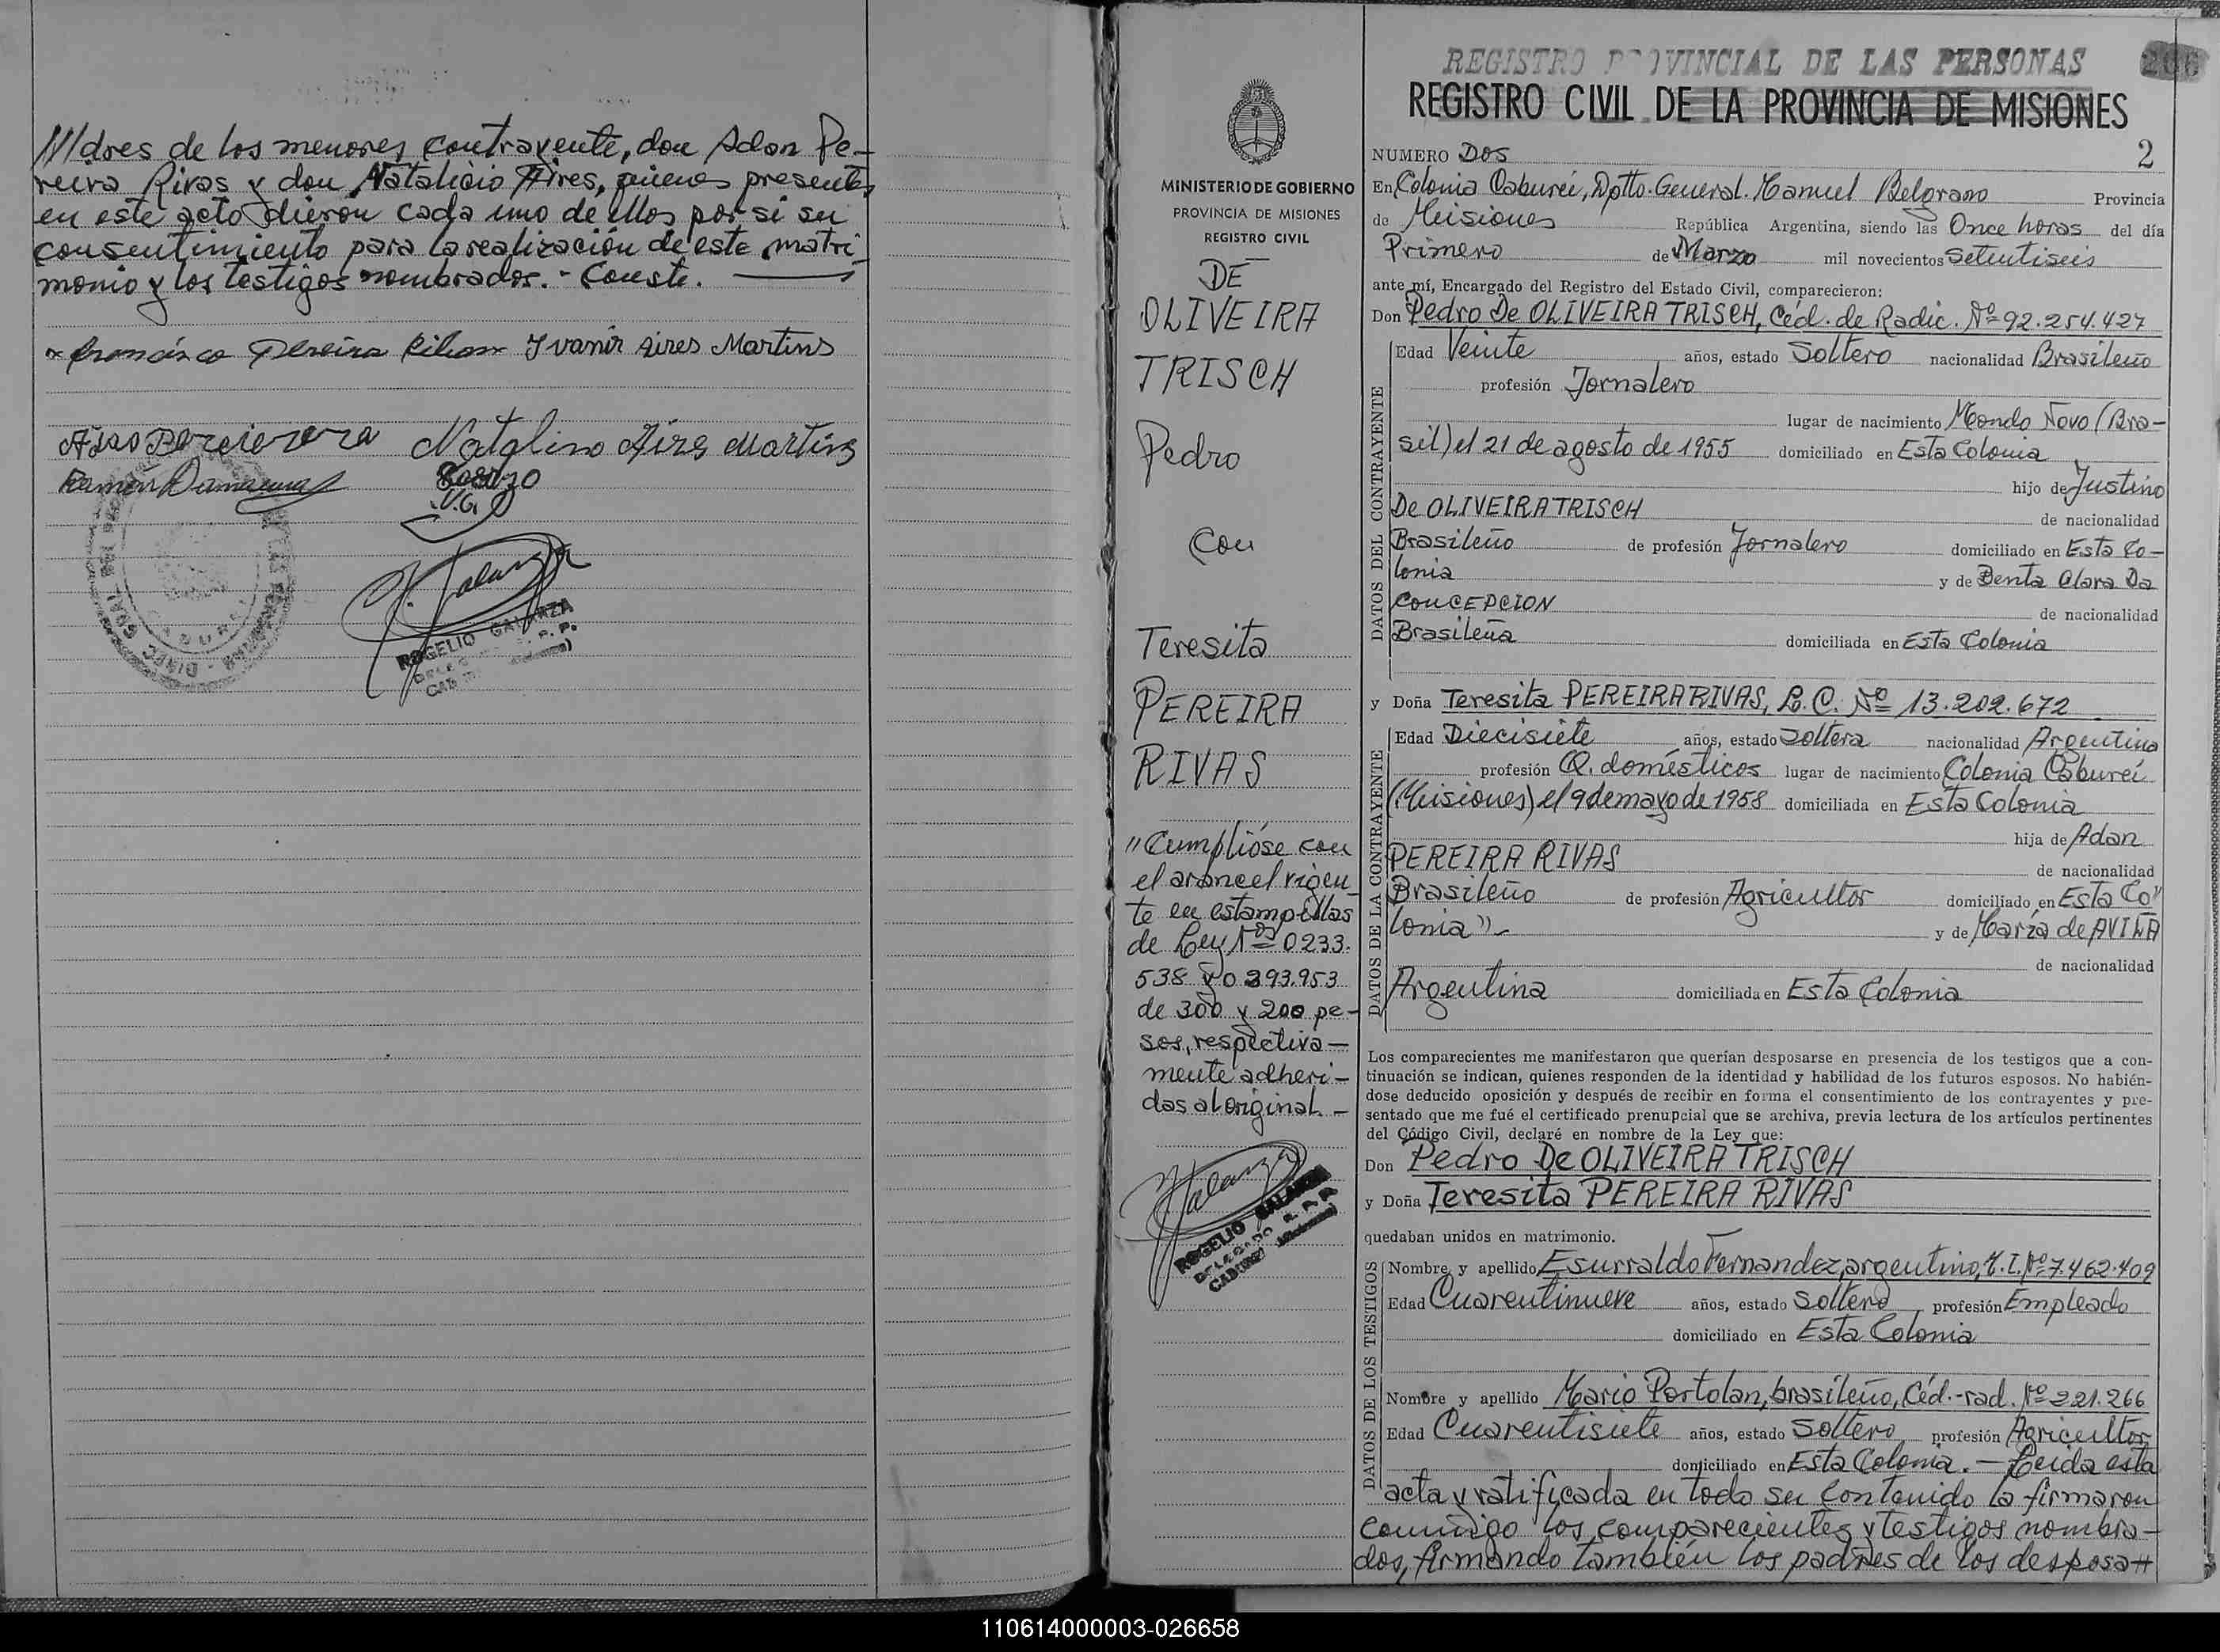 ///dres de los menores contrayente, don Adan Pe-
reira Rivas y don Natalicio Aires, quienes presentes
en este acto dieron cada uno de ellos por si su
consentimiento para la realización de este matri-
monio y los testigos nombrados.- Conste.
Francisca Pereira Ribas Ivanir Aires Martins
Natalino Aires Martins
Ramón
V.G.
ROGELIO GALARZA
REGISTRO PROVINCIAL DE LAS PERSONAS
206
REGISTRO CIVIL DE LA PROVINCIA DE MISIONES
MINISTERIO DE GOBIERNO
PROVINCIA DE MISIONES
REGISTRO CIVIL
DE
OLIVEIRA
TRISCH
Pedro
Con
Teresita
PEREIRA
RIVAS
"Cumplióse con
el arancel vigen-
te en estampillas
de Ley Nos 0233.
538 y 0393.953
de 300 y 200 pe-
sos, respectiva-
mente adheri-
das al original.-
ROGELIO GALARZA
NUMERO DOS 2
En Colonia Caburei, Dptto. General Manuel Belgrano Provincia
de Misiones República Argentina, siendo las Once horas del día
Primero de Marzo mil novecientos Setentiseis
ante mí, Encargado del Registro del Estado Civil, comparecieron:
Don Pedro De OLIVEIRA TRISCH, Céd. de Radic. Nº 92.254.427
DATOS DEL CONTRAYENTE
Edad Veinte años, estado Soltero nacionalidad Brasileño
profesión Jornalero
lugar de nacimiento Mondo Novo (Bra-
sil) el 21 de agosto de 1955 domiciliado en Esta Colonia
hijo de Justino
De OLIVEIRA TRISCH de nacionalidad
Brasileño de profesión Jornalero domiciliado en Esta Co-
lonia y de Benta Clara Da
CONCEPCION de nacionalidad
Brasileña domiciliada en Esta Colonia
y Doña Teresita PEREIRA RIVAS, L.C. Nº 13.202.672
DATOS DE LA CONTRAYENTE
Edad Diecisiete años, estado Soltera nacionalidad Argentina
profesión Q. domésticos lugar de nacimiento Colonia Caburei
(Misiones) el 9 de mayo de 1958 domiciliada en Esta Colonia
hija de Adan
PEREIRA RIVAS de nacionalidad
Brasileño de profesión Agricultor domiciliado en Esta Co"
lonia"- y de María de AVILA
de nacionalidad
Argentina domiciliada en Esta Colonia
Los comparecientes me manifestaron que querían desposarse en presencia de los testigos que a con-
tinuación se indican, quienes responden de la identidad y habilidad de los futuros esposos. No habién-
dose deducido oposición y después de recibir en forma el consentimiento de los contrayentes y pre-
sentado que me fué el certificado prenupcial que se archiva, previa lectura de los artículos pertinentes
del Código Civil, declaré en nombre de la Ley que:
Don Pedro De OLIVEIRA TRISCH
y Doña Teresita PEREIRA RIVAS
quedaban unidos en matrimonio.
DATOS DE LOS TESTIGOS
Nombre y apellido Esurraldo Fernandez, argentino, M.I. Nº 7.462.409
Edad Cuarentinueve años, estado Soltero profesión Empleado
domiciliado en Esta Colonia
Nombre y apellido Mario Portolan, brasileño, Céd.-rad. Nº 221.266
Edad Cuarentisiete años, estado Soltero profesión Agricultor
domiciliado en Esta Colonia.- Leida esta
acta y ratificada en todo su contenido la firmaron
conmigo los comparecientes y testigos nombra-
dos, firmando también los padres de los desposa-
110614000003-026658